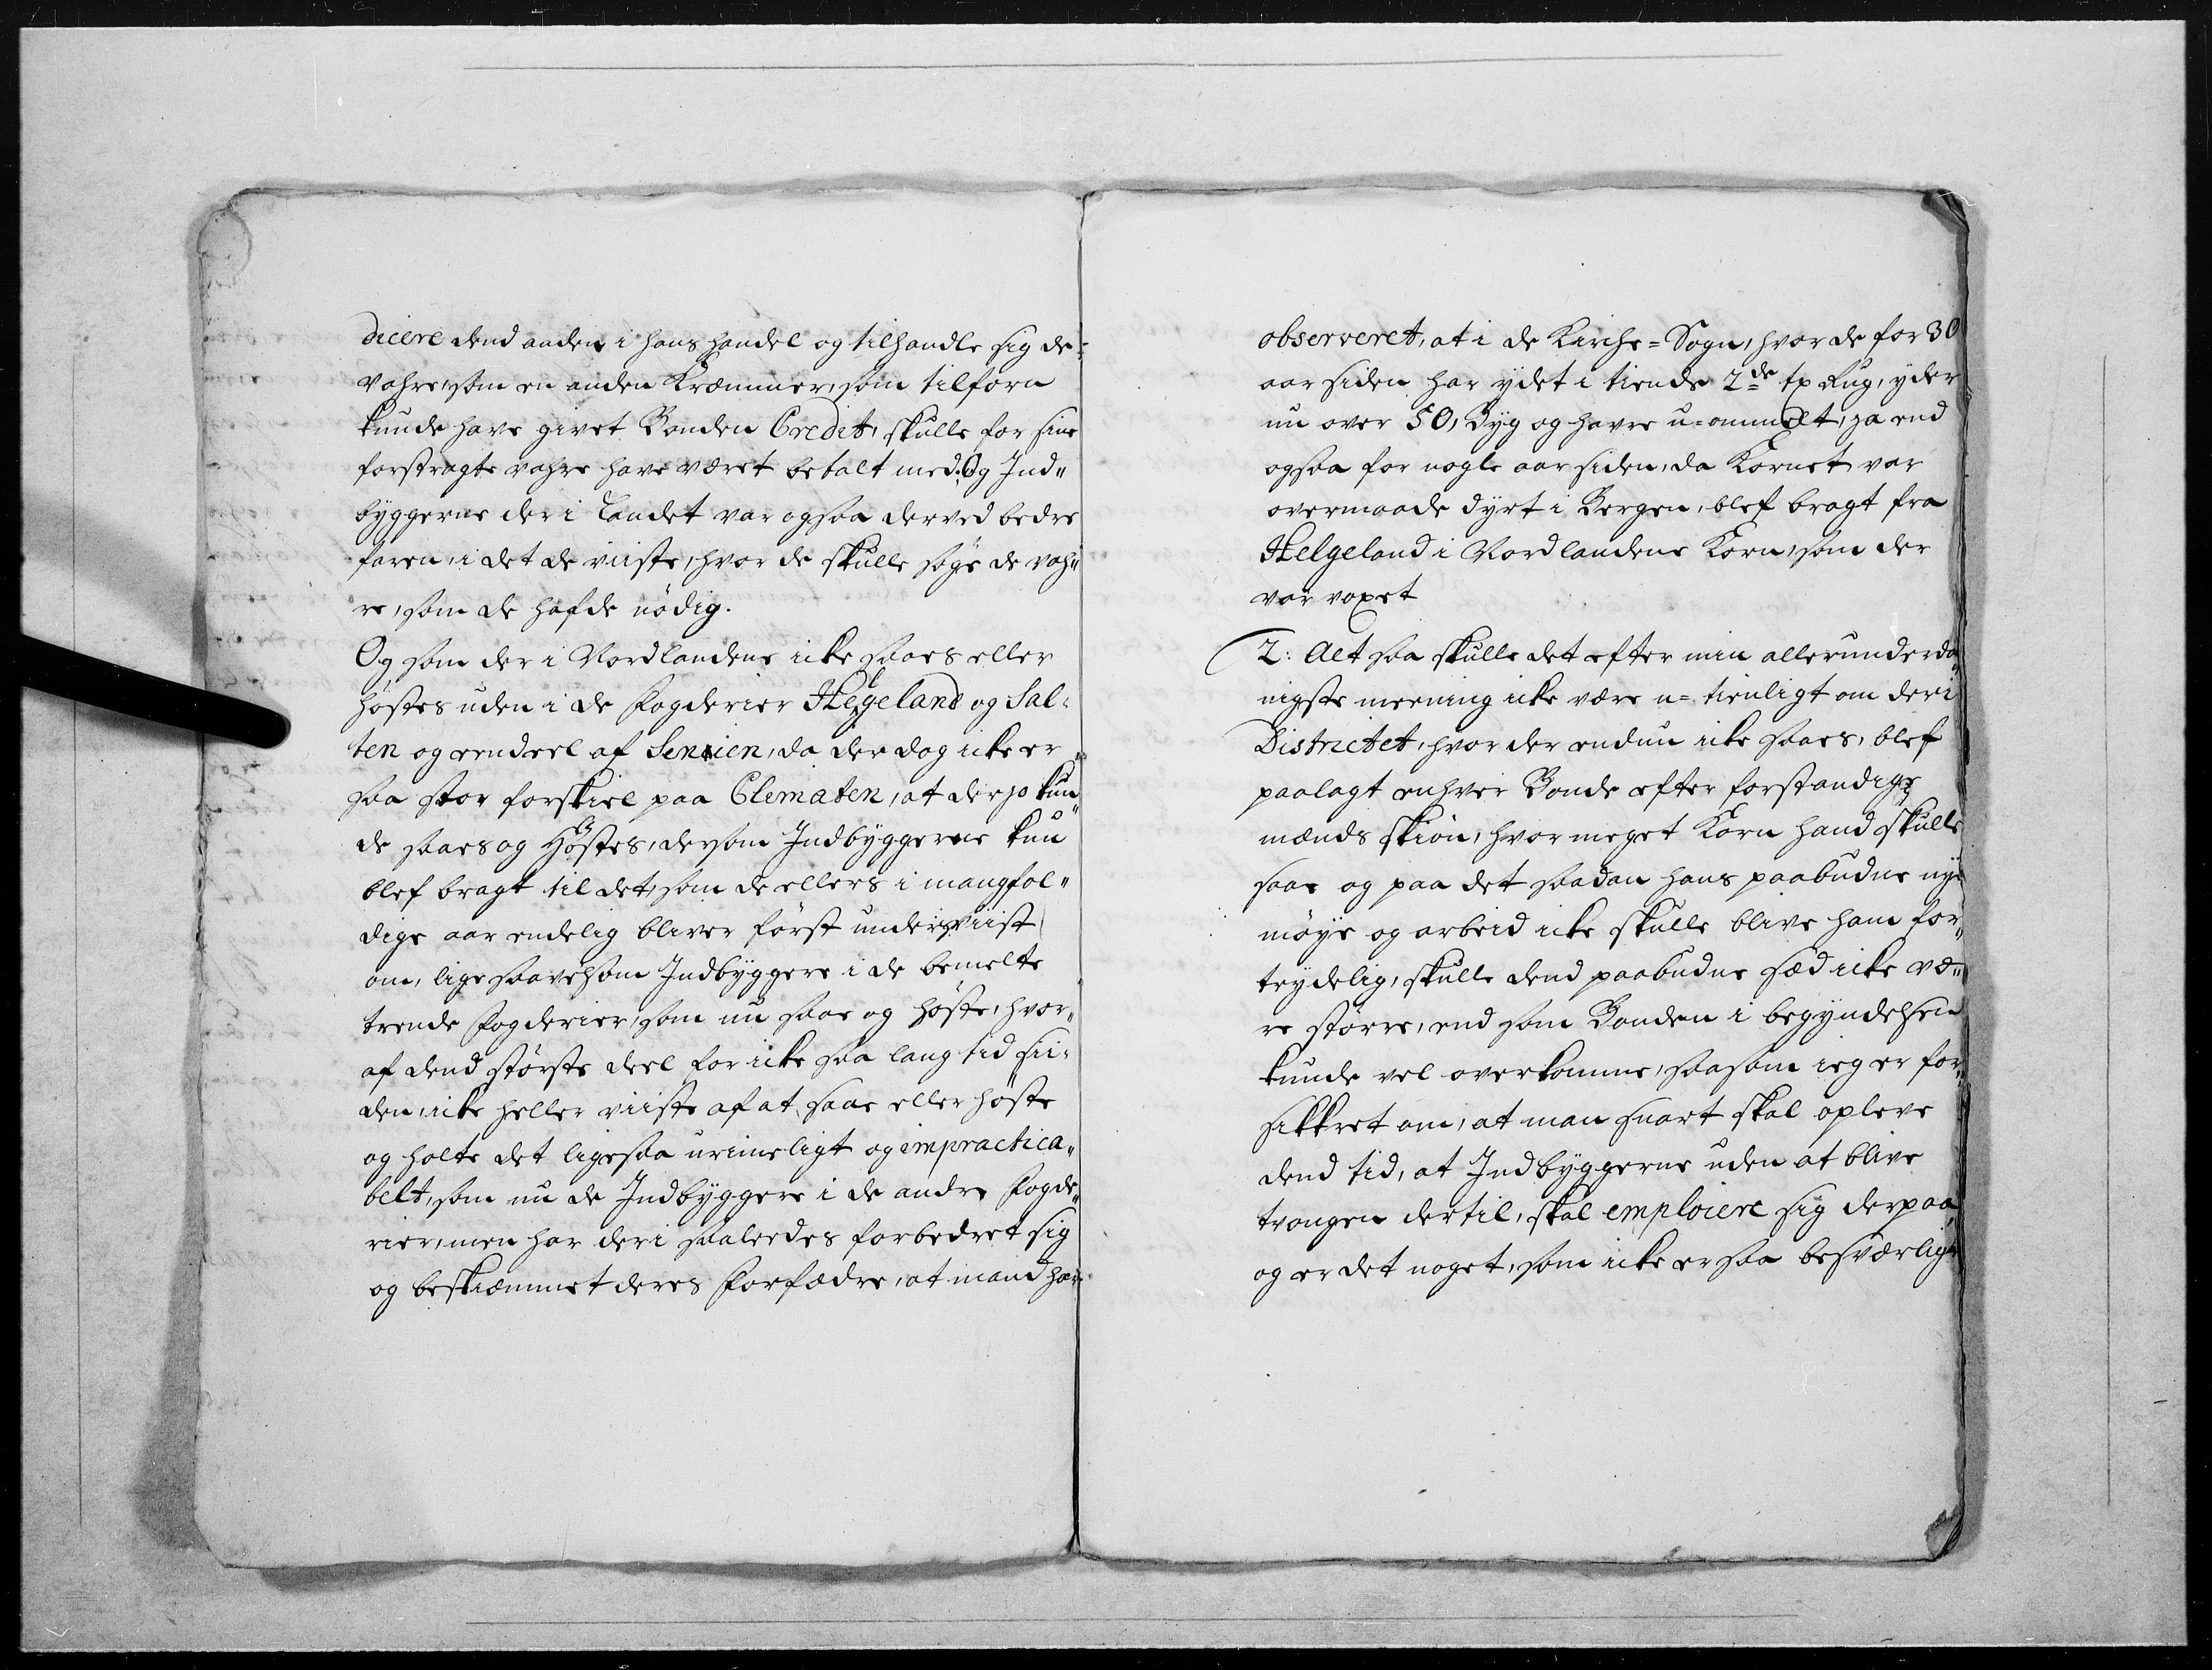 dicere dend anden i hans handel og tilhandle sig de
vahre, som en anden Kræmmer, som tilforn
kunde have givet Bonden Credit, skulle for sine
forstragte vahre have været betalt med. Og Ind„
byggerne der i Landet var ogsaa derved bedre
faren, i det de viiste, hvor de skulle søge de vah„
re, som de hafde nödig.
Og som der i Nordlandene icke saaes eller
høstes uden i de Fogderier Helgeland og Sal¬
ten og eendeel af Senien, da der dog icke er
saa stor forskiel paa Clematen, at der jo kun„
de saaes og Høstes, dersom Indbyggerne kun
blef bragt til det, som de ellers i mangfol„
dige aar endelig bliver først underviist
om, lige saavelsom Indbyggere i de bemelte
trende Fogderier, som nu saae og høste, hvor„
af dend største deel for icke saa lang tid sii¬
den, icke heller viiste af at saae eller høste
og holte det ligesaa urimeligt og impractica„
belt, som nu de Indbyggere i de andre Fogde„
rier, men har deri saaleedes forbedret sig
og beskiæmmet deres Forfædre, at mand har
observeret, at i de Kirche=Sogn, hvor de for 30
aar siden har ydet i tiende 2de tp Rug, yder
nu over 50, Byg og havre u=ommelt, ja end
ogsaa for nogle aar siden, da Kornet var
overmaade dyrt i Bergen, blef bragt fra
Helgeland i Nordlandene Korn, som der
var voxet
2: Alt saa skulle det efter min allerunderda„
nigste meening icke være u=tienligt om der i
Districtet, hvor der endnu icke saaes, blef
paalagt enhver Bonde efter forstandige
mænds skiøn, hvor meget Korn hand skulle
saae og paa det saadan hans paabudne nye
møye og arbeid icke skulle blive ham for„
trydelig, skulle dend paabudne sæd icke væ„
re større, end som Bonden i begyndelsen
kunde vel overkomme, saasom ieg er for„
sikkret om, at man snart skal opleve
dend tid, at Indbyggerne uden at blive
tvongen dertil, skal emploiere sig derpaa,
og er det noget, som icke er saa besværligt